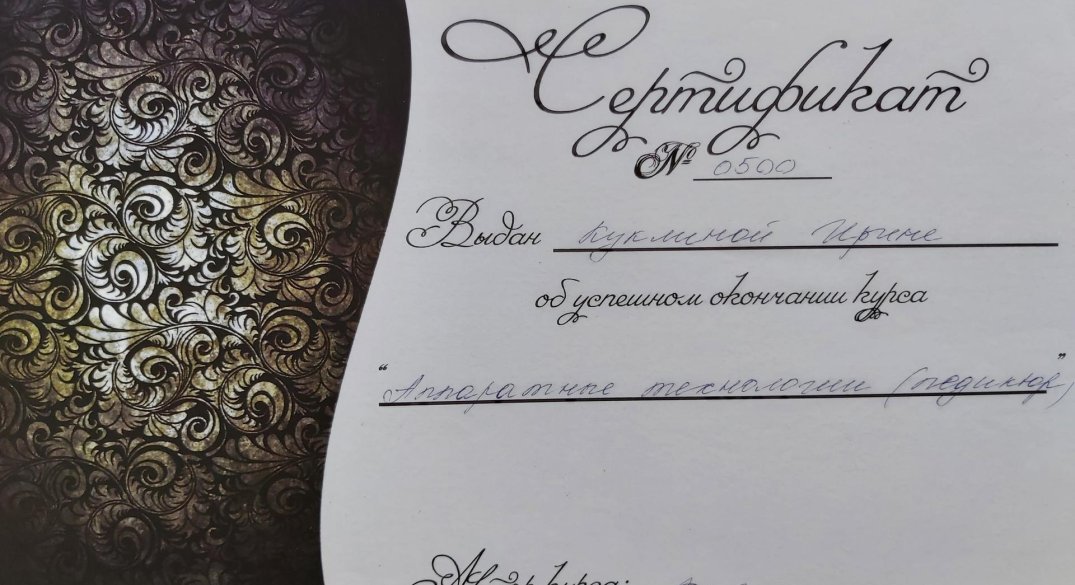 Сертификат
№ 0500
Выдан Куклиной Ирине
об успешном окончании курса
"Аппаратные технологии (педикюр)"
Автор курса: